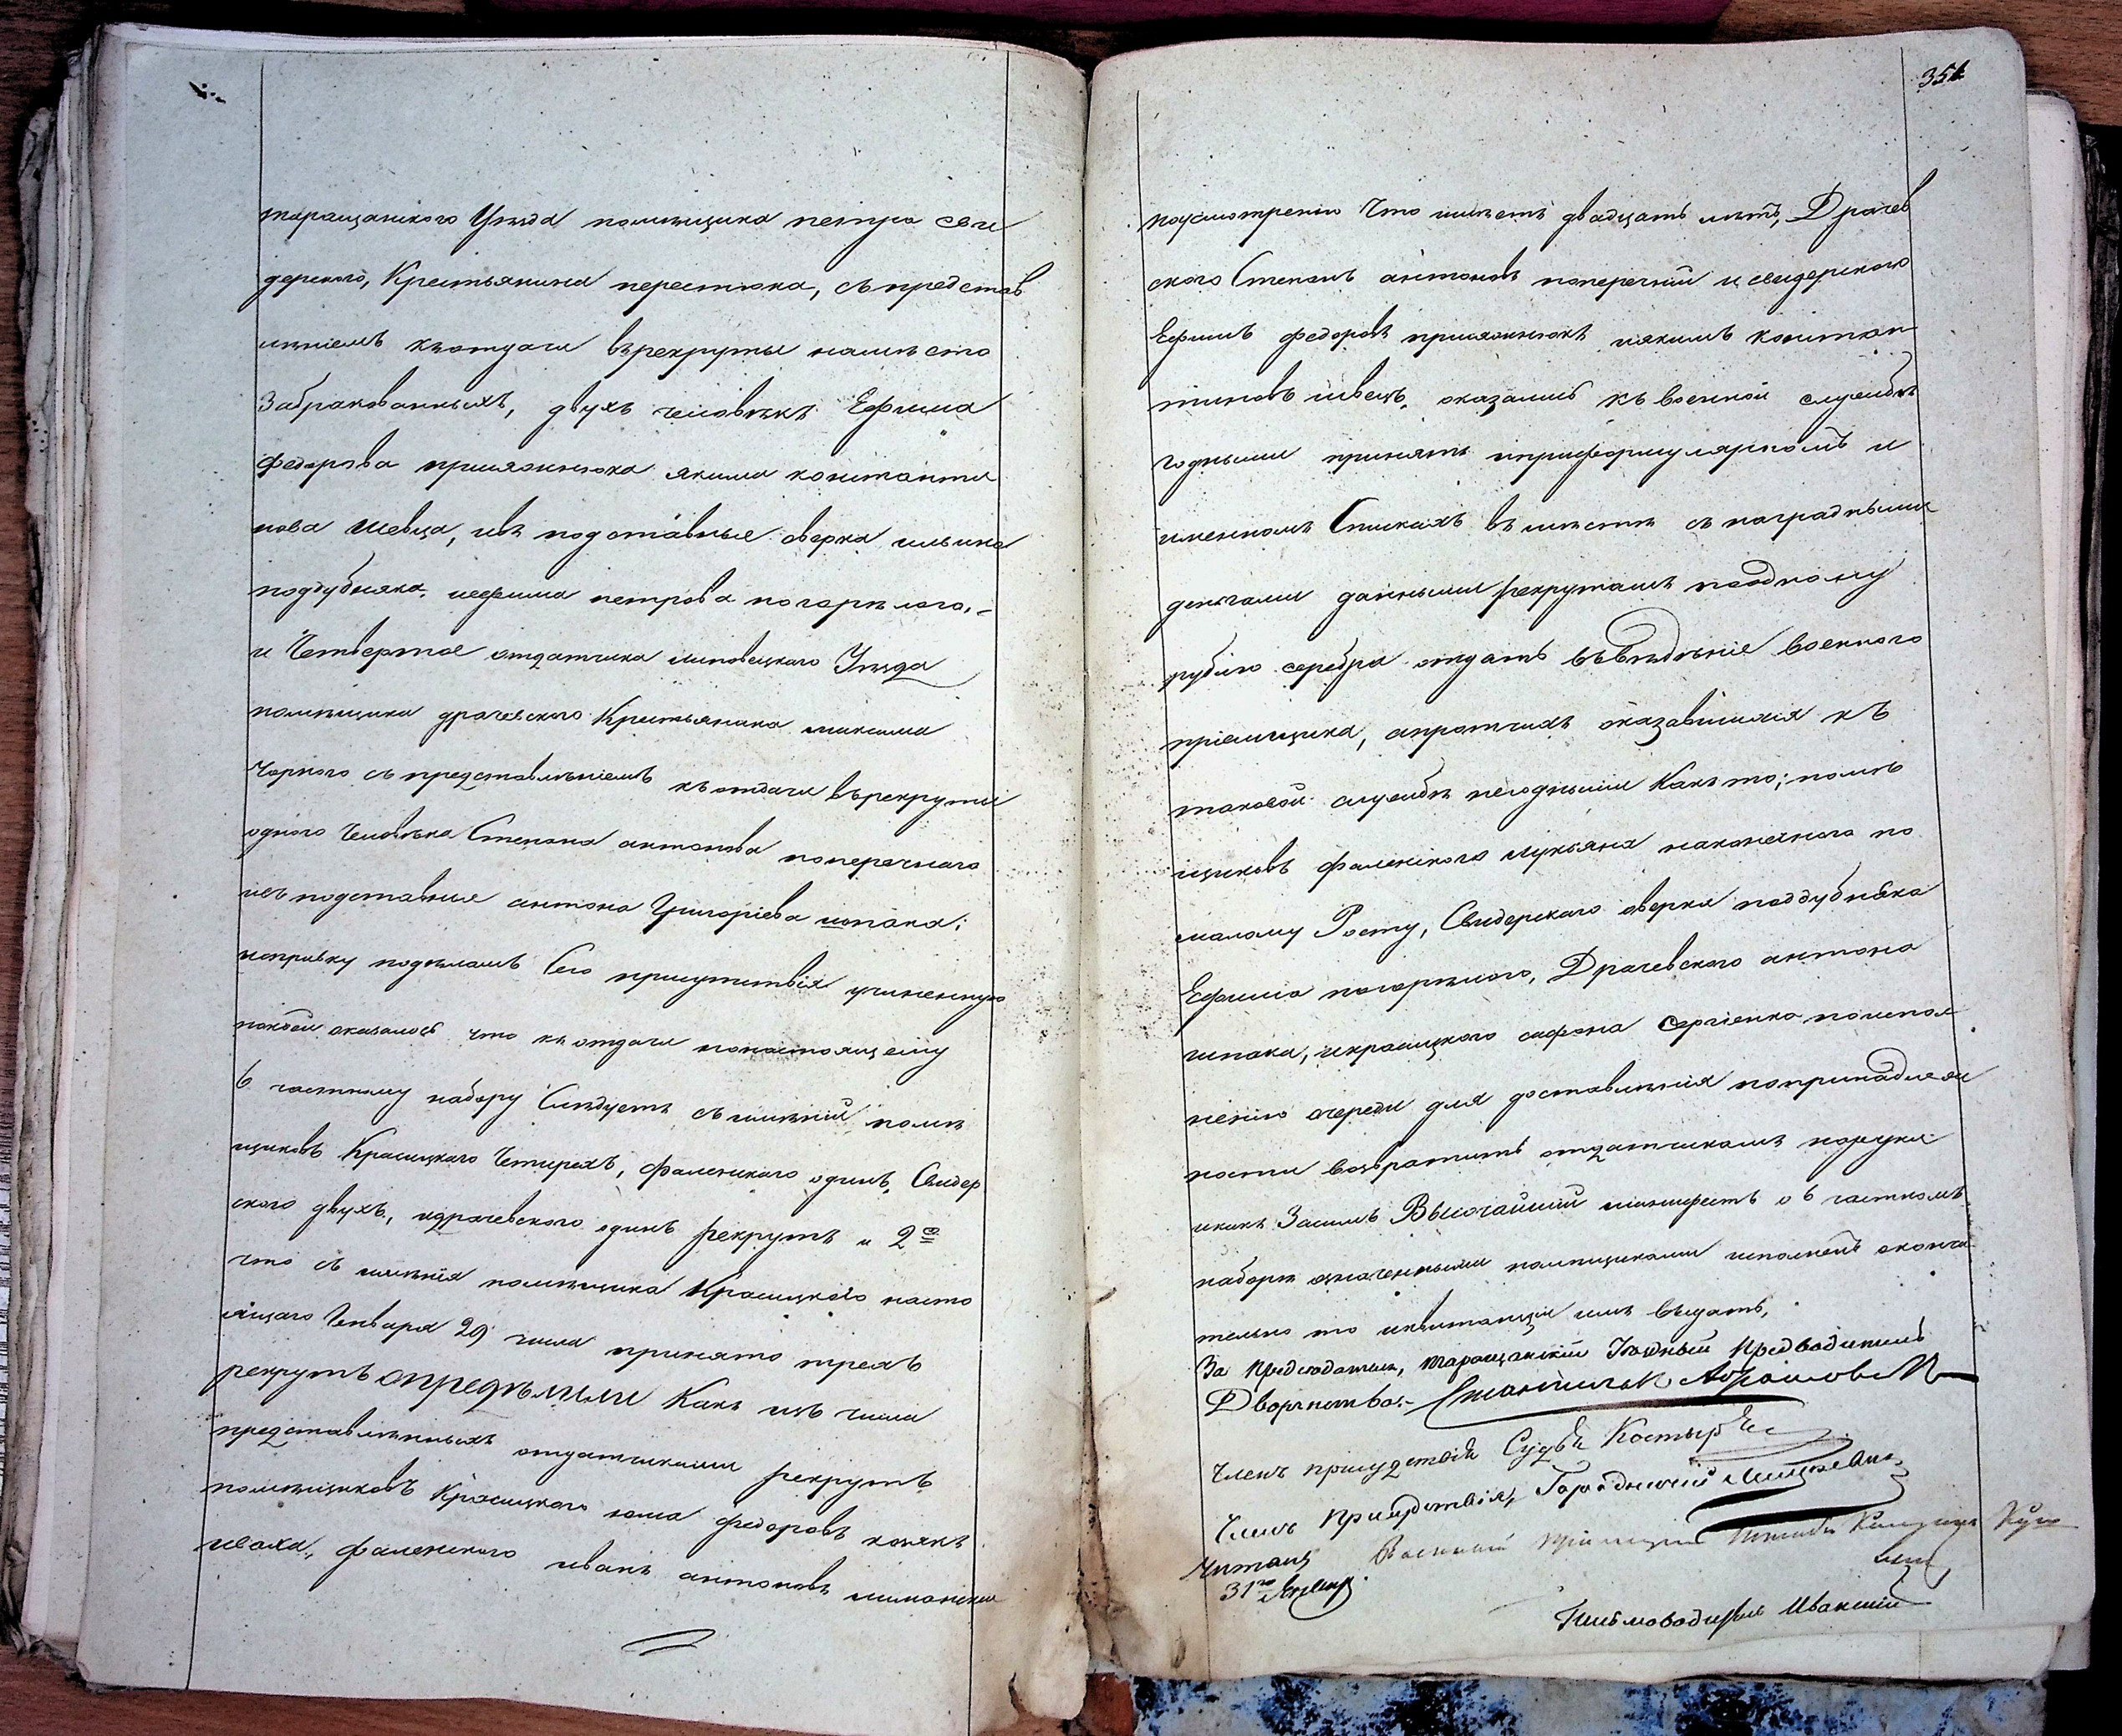 таращанского Уезда помещика петра Сви
дерского, Крестьянина перестюка, съ представ
лениемъ къотдачи върекруты наместо
Забракованныхъ, двухъ человѣкъ Ефима
федорова якима константи
нова шевца, ивъ подставные оверка ильина
поддубняка, иефима петрова погорѣлого,-
и Четвертое отдатчика липовецкого Уѣзда
помѣщика драчевского Крестьянина максима
Чорного съ представлѣніемъ къ отдачи върекруты
одного Человѣка Степана антонова поперечнаго
ивъ подставные антона Григоріева шпака;
исправку подѣламъ Сего присутствія учиненную
покоей оказалось что къ отдачи понастоящему
6 частному набору Слѣдуетъ съ имѣній помѣ
щиковъ Красицкаго Четырехъ, фаленского одинъ, Свидер
ского двухъ, идрачевского одинъ рекрутъ и 2е
что съ имѣнія помѣщика Красицкого насто
ящаго Генваря 29 числа принято трехъ
рекрутъ опредѣлили Какъ изъ числа
представлѣнныхъ отдатчиками рекрутъ
помѣщиковъ Красицкого федоровъ
фаленского иванъ антоновъ
351
поусмотренію Что имѣетъ двадцать лѣтъ, Драчев
ского Степанъ антоновъ поперечний и свидерского
Ефимъ федоровъ иякимъ констан
тиновъ швецъ, оказались къ военной службѣ
годными принять приформулярномъ и
именномъ Спискахъ въ мѣстѣ съ наградными
деньгами данными рекрутамъ поодному
рублю серебра отдать въвѣдѣніе военного
пріемщика, апротчихъ оказавшихся къ
таковой службѣ негодными Какъ то; помѣ
щиковъ фаленского лукьяна наконечного по
малому Росту, Свидерского оверка поддубняка
Ефима погорѣлого, Драчевского антона
шпака, икрасицкого сафона Сергіенка поиспол
ненію очереди для доставлѣнія попринадлеж
ности возвратить отдатчикамъ поруки
икакъ Засимъ Высочайший манифестъ о 6 частномъ
наборѣ означенными помѣщиками исполненъ оконча
тельно то иквитанціи имъ выдать,
За Предсѣдателя, таращанский Уѣздный Предводитель
Дворянства
Членъ присудствія Судья
Членъ Присудствія, Городничий
Читалъ Военный Пріемщикъ
31го Января
Письмоводитель